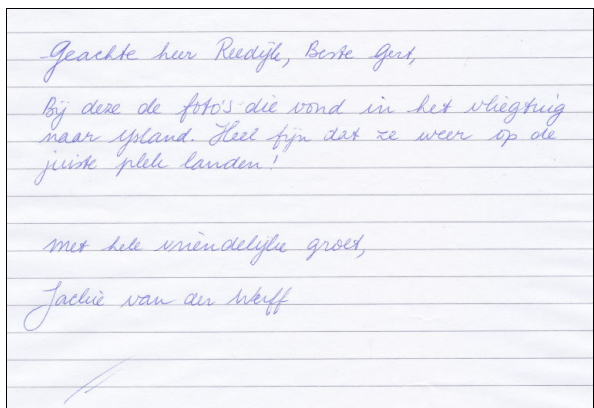 Geachte heer Reedijk, Beste Gert,
Bij deze de foto's die vond in het vliegtuig
naar ijsland. Heel fijn dat ze weer op de
juiste plek landen!
Met hele vriendelijke groet,
Jackie van der Werff